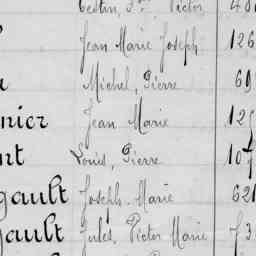 Victor
Jean Marie Joseph 126
Michel, Pierre 69
nier Jean Marie 12
nt Louis, Pierre 107
gault Joseph Marie 621
gault Jules, Victor Marie 73